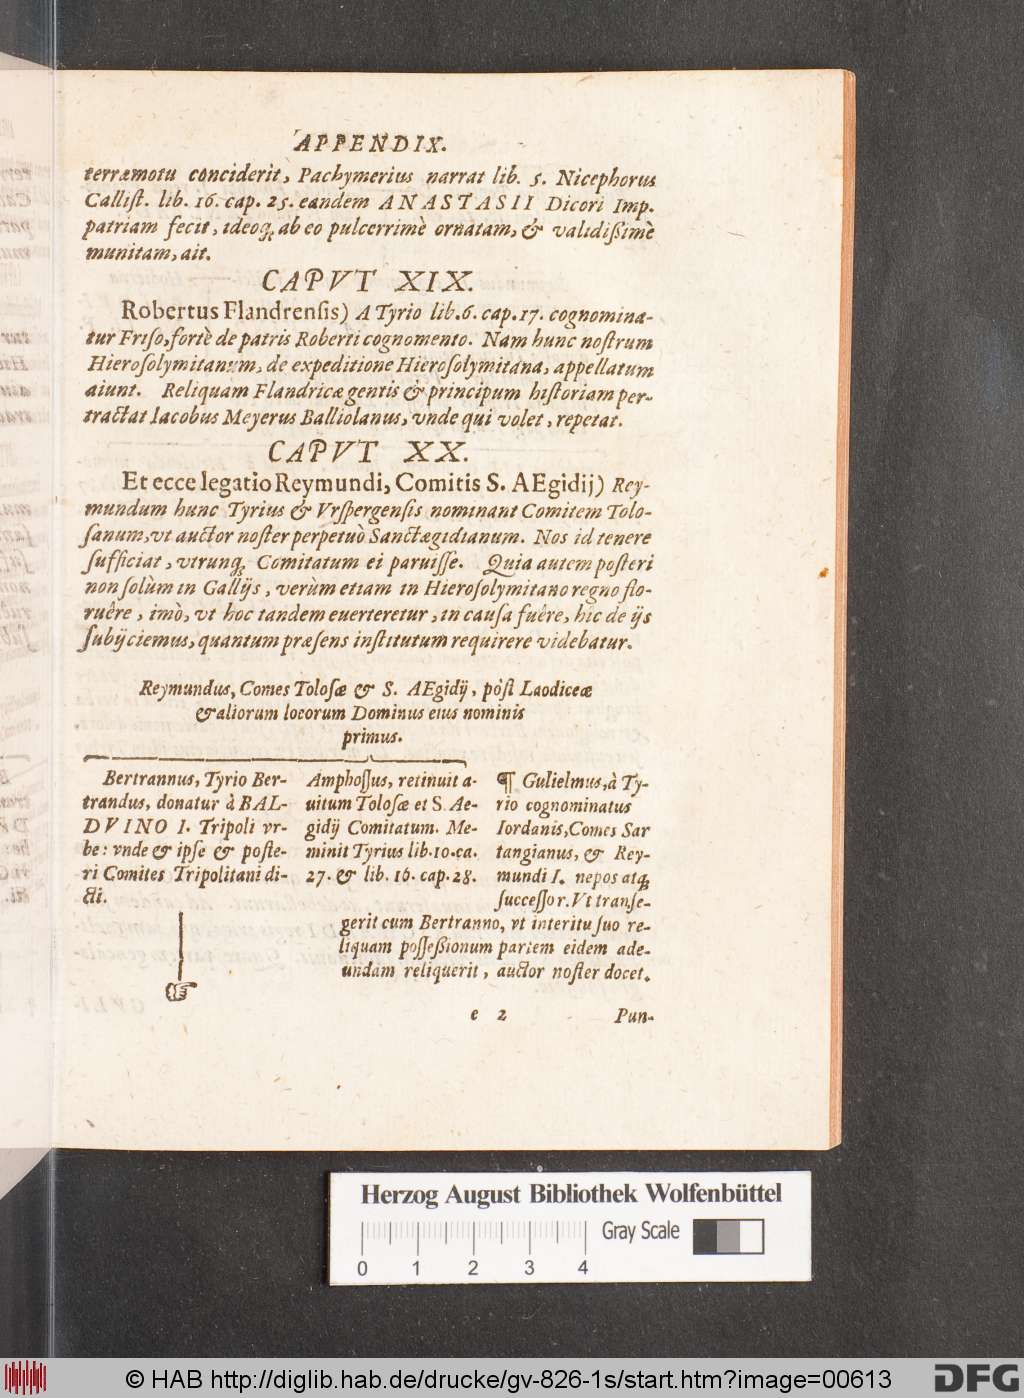 APPENDIX.
terræmotu conciderit, Pachymerius narrat lib. 5. Nicephorus
Callist. lib. 16. cap. 25. eandem ANASTASII Dicori Imp.
patriam fecit, ideoq; ab eo pulcerrimè ornatam, & validißimè
munitam, ait.
CAPVT XIX.
Robertus Flandrensis) A Tyrio lib. 6. cap. 17. cognomina-
tur Friso, fortè de patris Roberti cognomento. Nam hunc nostrum
Hierosolymitanum, de expeditione Hierosolymitana, appellatum
aiunt. Reliquam Flandricæ gentis & principum historiam per-
tractat Iacobus Meyerus Balliolanus, vnde qui volet, repetat.
CAPVT XX.
Et ecce legatio Reymundi, Comitis S. AEgidij) Rey-
mundum hunc Tyrius & Vrspergensis nominant Comitem Tolo-
sanum, vt auctor noster perpetuò Sanctægidianum. Nos id tenere
sufficiat, vtrunq; Comitatum ei paruisse. Quia autem posteri
non solùm in Gallijs, verùm etiam in Hierosolymitano regno flo-
ruêre, imò, vt hoc tandem euerteretur, in causa fuêre, hîc de ijs
subijciemus, quantum præsens institutum requirere videbatur.
Reymundus, Comes Tolosæ & S. AEgidij, pòst Laodiceæ
& aliorum locorum Dominus eius nominis
primus.
Bertrannus, Tyrio Ber-
trandus, donatur à BAL-
DVINO I. Tripoli vr-
be: vnde & ipse & poste-
ri Comites Tripolitani di-
cti.
Amphossus, retinuit a-
uitum Tolosæ et S. Ae-
gidij Comitatum. Me-
minit Tyrius lib. 10. ca.
27. & lib. 16. cap. 28.
¶ Gulielmus, à Ty-
rio cognominatus
Iordanis, Comes Sar
tangianus, & Rey-
mundi I. nepos atq;
successor. Vt transe-
gerit cum Bertranno, vt interitu suo re-
liquam possessionum partem eidem ade-
undam reliquerit, auctor noster docet.
e 2 Pun-
Herzog August Bibliothek Wolfenbüttel
Gray Scale
0 1 2 3 4
© HAB http://diglib.hab.de/drucke/gv-826-1s/start.htm?image=00613
DFG